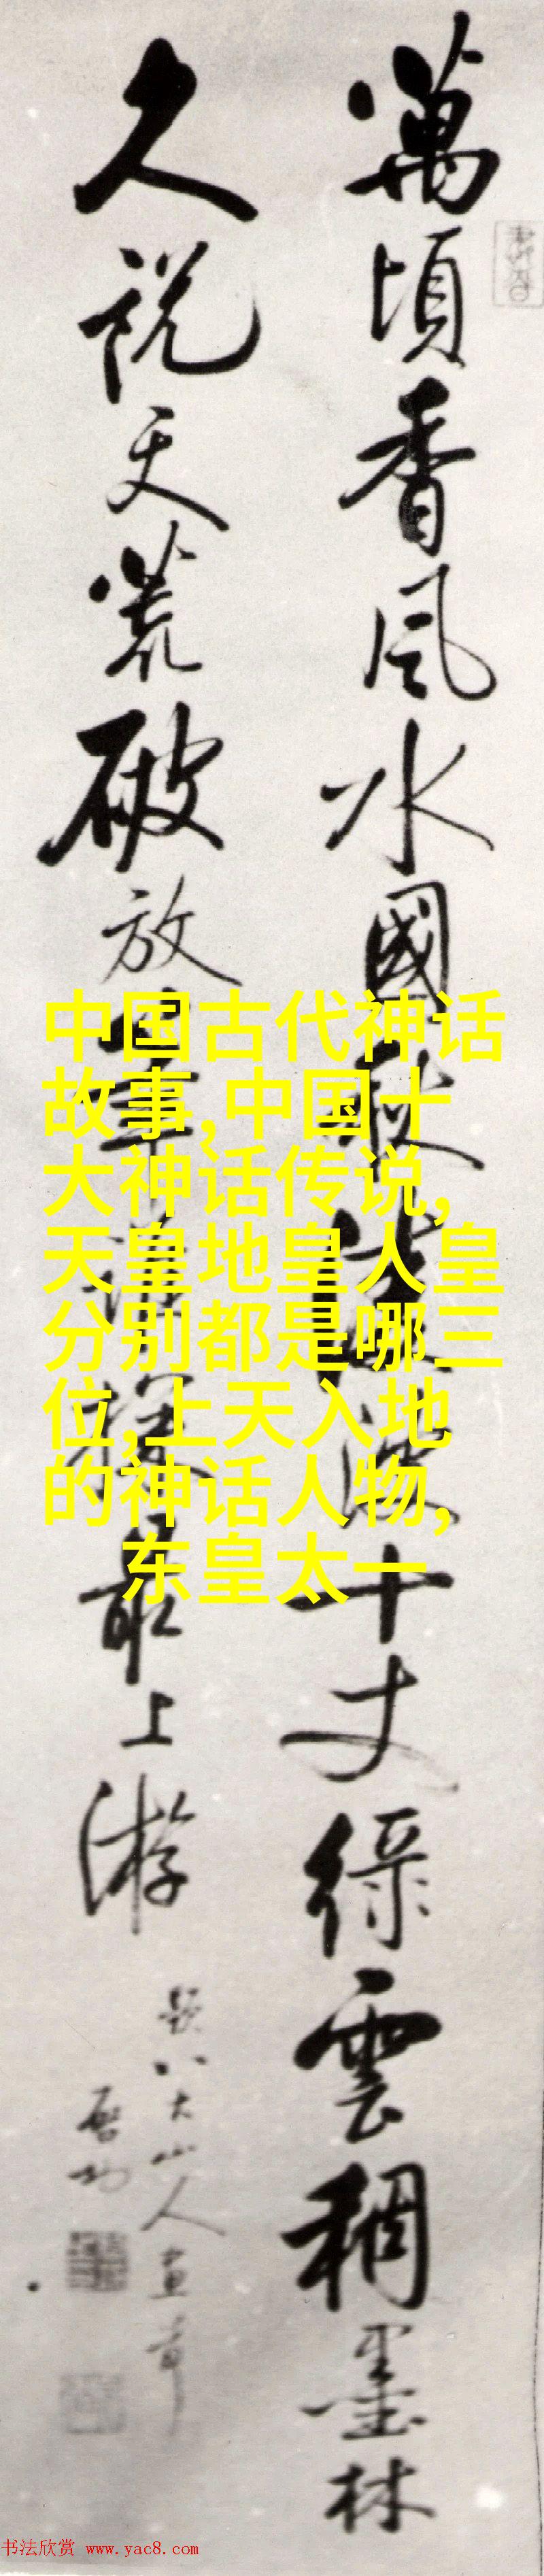 萬頃香風水國十丈綠雲稠墨林
久說天荒破放最上游
題八大山人畫
啟功
中国古代神话
故事,中国十
大神话传说,
天皇地皇人皇
分别都是哪三
位,上天入地
的神话人物,
东皇太一
书法欣赏 www.yac8.com